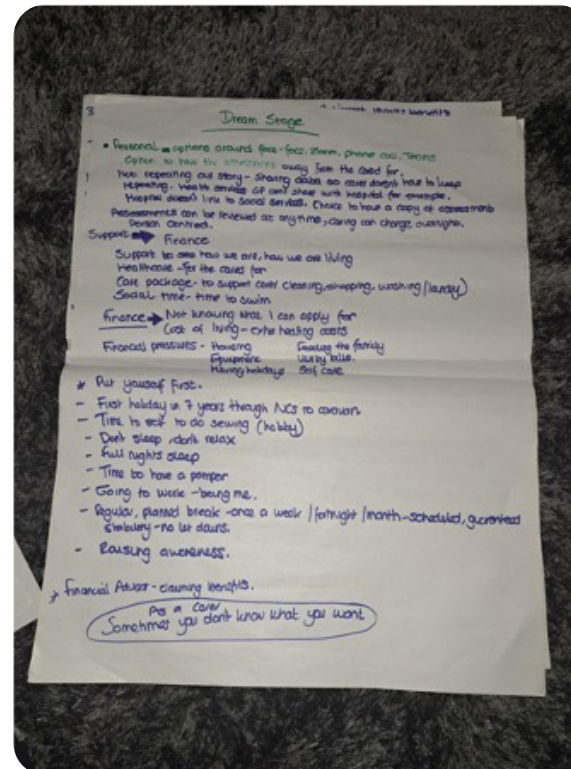 Dream Stage
• Personal - options around face-face, Zoom, phone call, Teams
Option to have the assessment away from the cared for.
Not repeating our story - sharing data so carer doesn't have to keep
repeating. Health services GP can't share with hospital for example.
Hospital doesn't link to social services. Choice to have a copy of assessment
Assessments can be reviewed at anytime, caring can change overnight.
Person Centred.
Support → Finance
Support to see how we are, how we are living
Healthcare - for the cared for
Care package - to support carer cleaning, shopping, washing/laundry)
Social time - time to swim
Finance → Not knowing what I can apply for
Cost of living - extra heating costs
Financial pressures - Housing Feeding the family
Equipment Utility bills.
Having holidays Self care
* Put yourself first.
- First holiday in 7 years through NCS to caravan
- Time to self to do sewing (hobby)
- Don't sleep, don't relax
- Full nights sleep
- Time to have a pamper
- Going to work - being me.
- Regular, planned break - once a week / fortnight / month - scheduled, guarenteed
- no let downs.
- Raising awareness.
* Financial Advisor - claiming benefits.
As a carer
Sometimes you don't know what you want